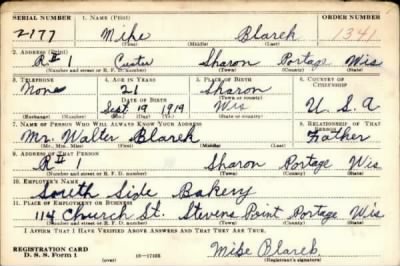 SERIAL NUMBER 1. NAME (Print) ORDER NUMBER
2177 Mike Blarek 1341
(First) (Middle) (Last)
2. ADDRESS (Print)
R#1 Custer Sharon Portage Wis
(Number and street or R. F. D. number) (Town) (County) (State)
3. TELEPHONE 4. AGE IN YEARS 5. PLACE OF BIRTH 6. COUNTRY OF CITIZENSHIP
None 21 Sharon
DATE OF BIRTH (Town or county)
Sept 19 1919 Wis U.S.A
(Exchange) (Number) (Mo.) (Day) (Yr.) (State or country)
7. NAME OF PERSON WHO WILL ALWAYS KNOW YOUR ADDRESS 8. RELATIONSHIP OF THAT PERSON
Mr. Walter Blarek Father
(Mr., Mrs., Miss) (First) (Middle) (Last)
9. ADDRESS OF THAT PERSON
R#1 Sharon Portage Wis
(Number and street or R. F. D. number) (Town) (County) (State)
10. EMPLOYER'S NAME
South Side Bakery
11. PLACE OF EMPLOYMENT OR BUSINESS
114 Church St. Stevens Point Portage Wis
(Number and street or R. F. D. number) (Town) (County) (State)
I AFFIRM THAT I HAVE VERIFIED ABOVE ANSWERS AND THAT THEY ARE TRUE.
REGISTRATION CARD
D. S. S. Form 1 (over) 16—17105 Mike Blarek.
(Registrant's signature)